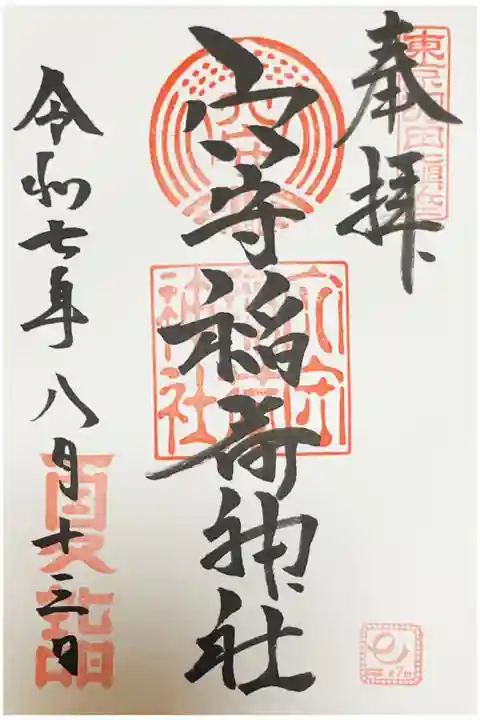 東京羽田鎮座
奉拝
穴守稲荷神社
穴守
稲荷
神社
令和七年八月十三日
夏詣